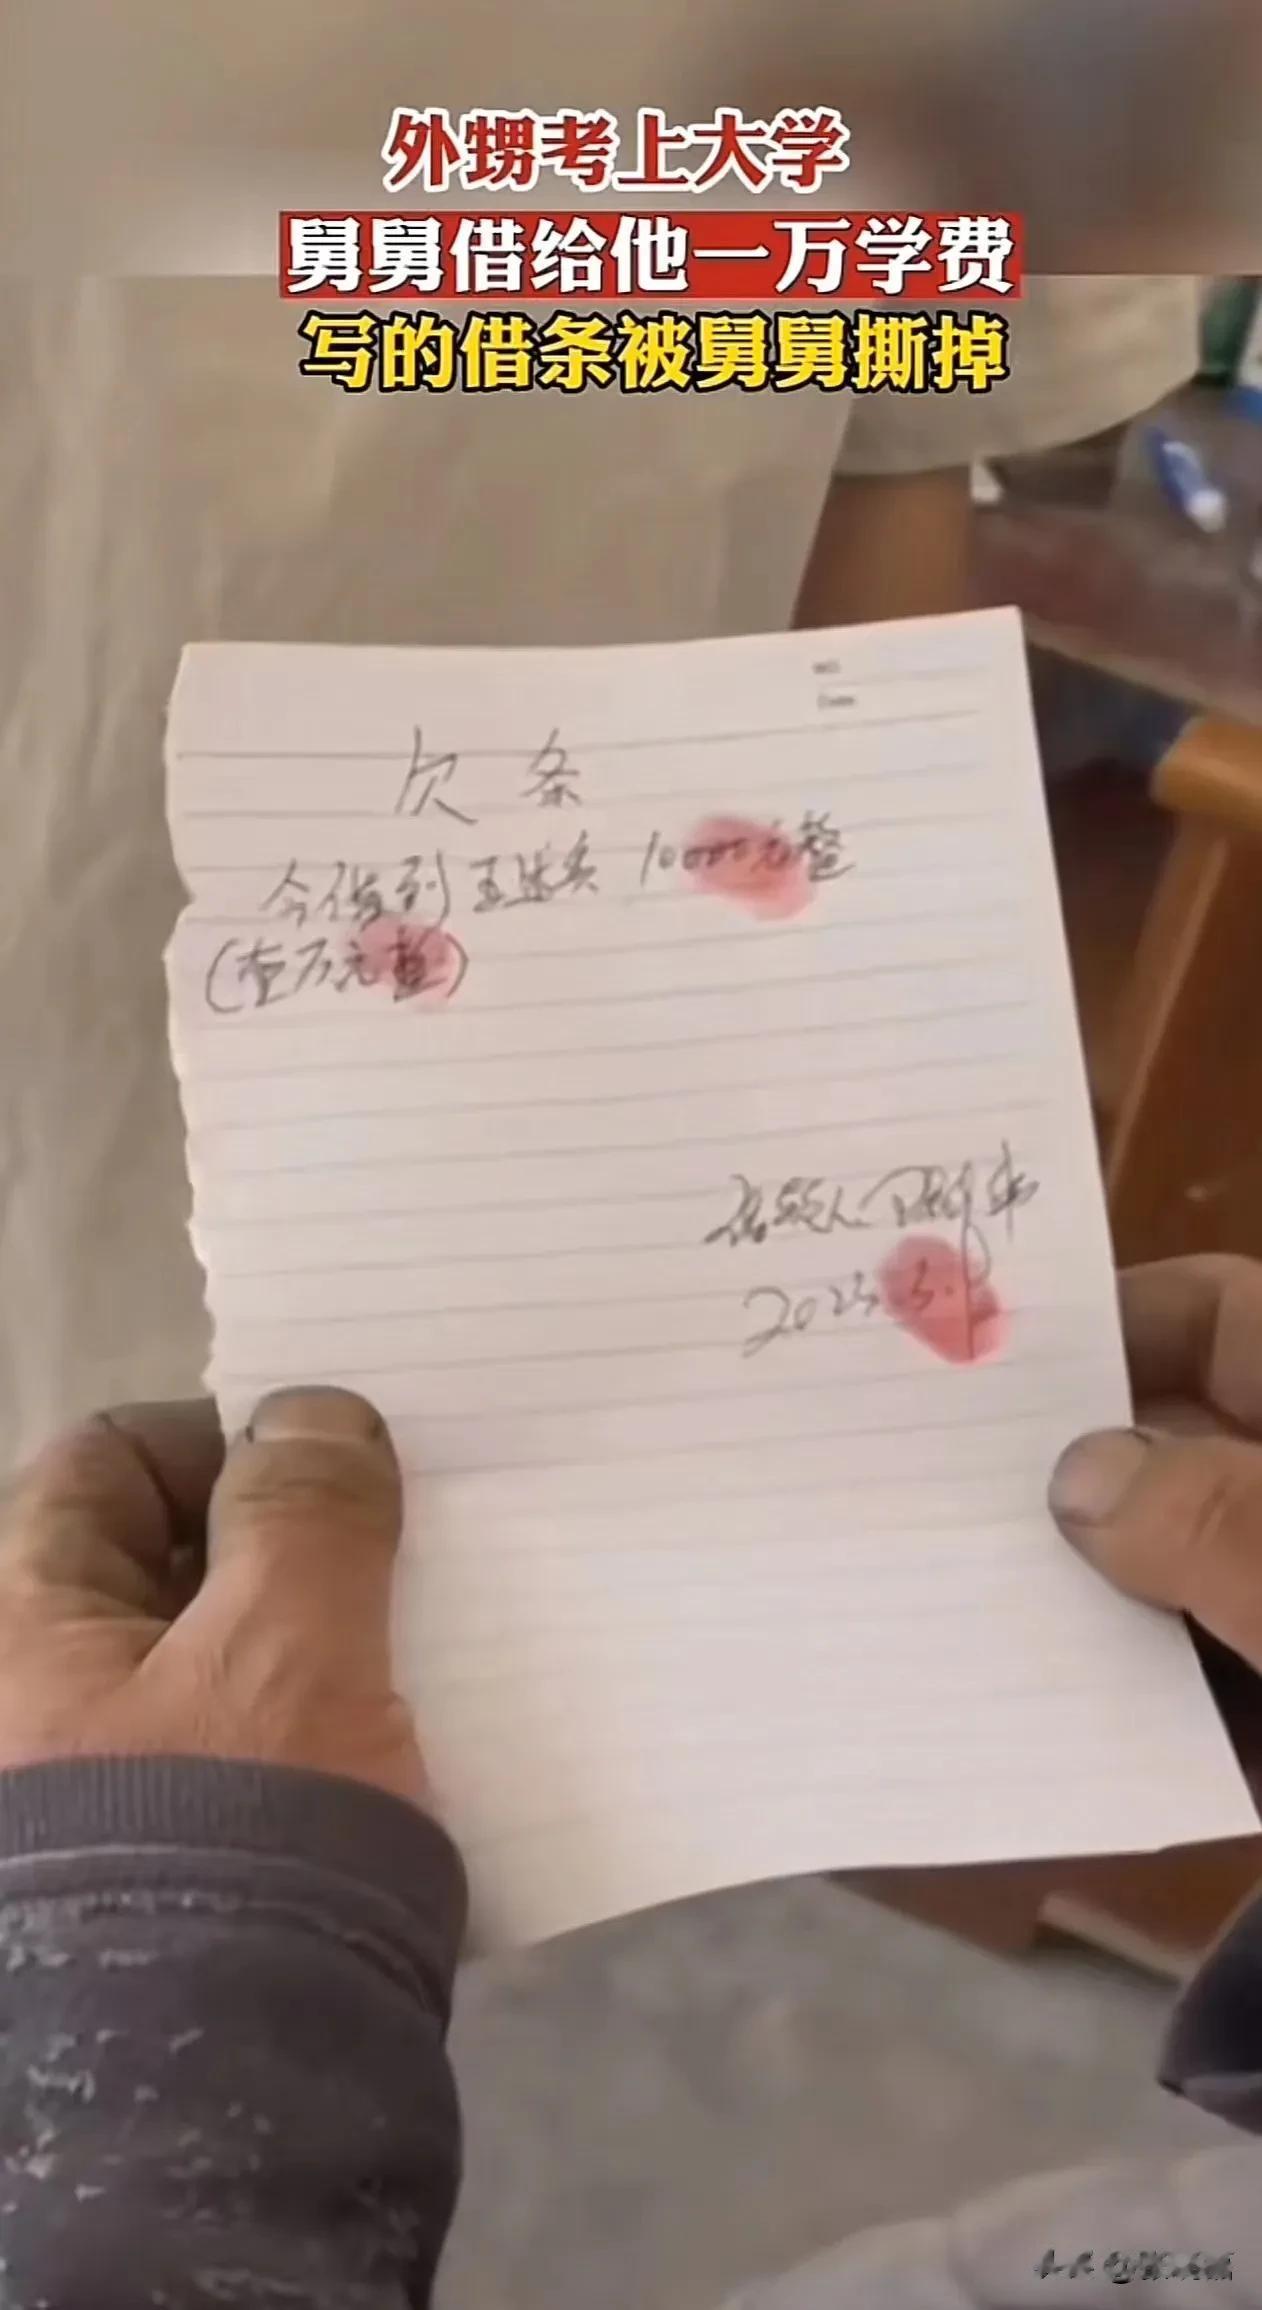 外甥考上大学
舅舅借给他一万学费
写的借条被舅舅撕掉
NO.
Date
欠条
今借到 10000元整
(壹万元整)
借款人
2023.3.
头条